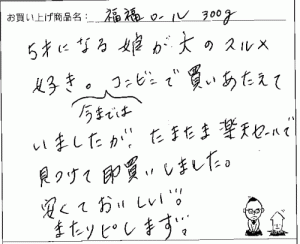 お買い上げ商品名： 福福ロール 300g
5才になる娘が大のスルメ
好き。コンビニで買いあたえて
今までは
いましたが、たまたま楽天セールで
見つけて即買いしました。
安くておいしい!!
またリピします!!